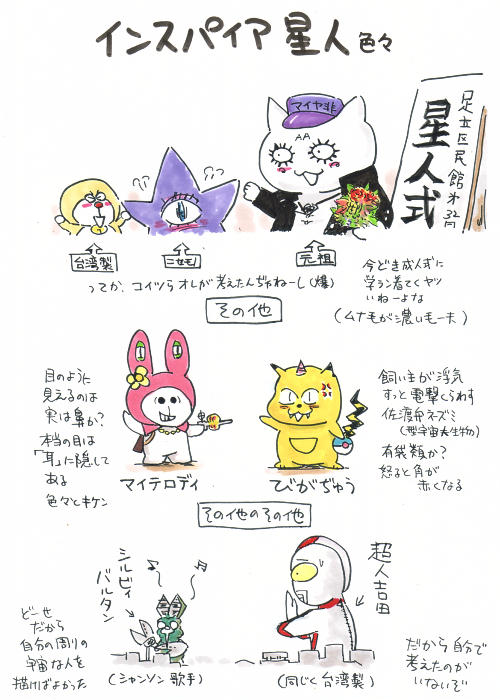 インスパイア星人 色々
マイヤ非
足立区民館
星人式
台湾製
ニセモノ
元祖
ってか、コイツらオレが考えたんぢゃねーし(爆)
今どき成人式に
学ラン着てくヤツ
いねーよな
(ムナモが濃いモー夫)
その他
目のように
見えるのは
実は鼻か?
本当の目は
「耳」に隠して
ある
色々とキケン
マイテロディ
飼い主が浮気
すっと電撃くらわす
佐渡弁ネズミ
(型宇宙大生物)
有袋類か?
怒ると角が
赤くなる
びがぢゅう
その他のその他
シルビィ
バルタン
超人吉田
どーせ
だから
自分の周りの
宇宙な人を
描けばよかった
(シャンソン歌手)
(同じく台湾製)
だから自分で
考えたのが
いないで